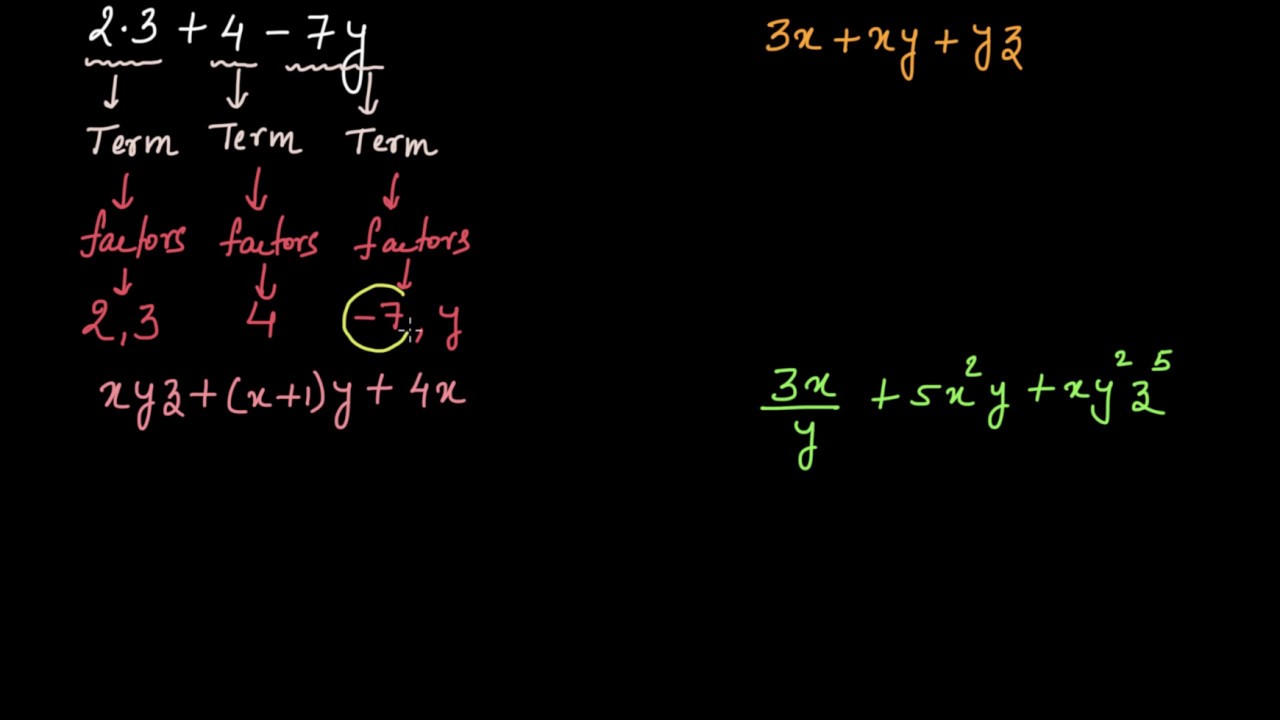 2·3 + 4 - 7y
Term Term Term
factors factors factors
2,3 4 -7, y
xyz + (x+1)y + 4x
3x + xy + yz
3x/y + 5x²y + xy²z⁵